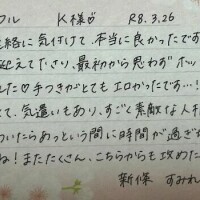 フル K様♡ R8.3.26
絡に気付けて、本当に良かったです
迎えて下さり、最初から思わず ホッ
した♡手つきがとてもエロかったです…!
て、気遣いもあり、すごく素敵な人柄
ついたらあっという間に時間が過ぎ
ね!またたくさん、こちらからも攻めた
新保 すみれ